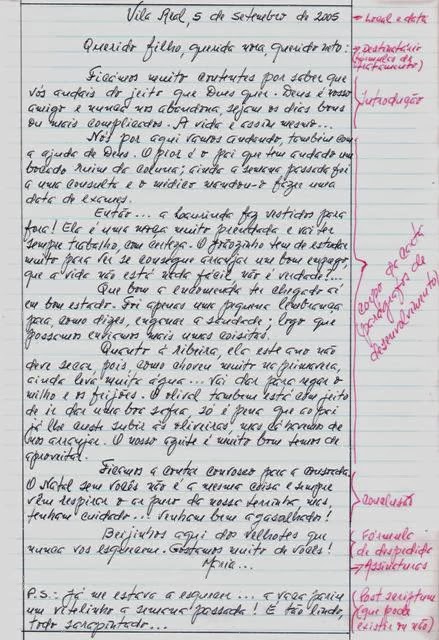 Vila Real, 5 de Setembro de 2005
→ Local e data
Querido filho, querida nora, querido neto:
→ Destinatário
(fórmulas de
tratamento)
Ficámos muito contentes por saber que
vós andais do jeito que Deus quer. Deus é nosso
amigo e nunca nos abandona, sejam os dias bons
ou mais complicados. A vida é assim mesmo...
Introdução
Nós por aqui vamos andando, também com
a ajuda de Deus. O pior é o pai que tem andado um
bocado ruim da coluna; ainda a semana passada foi
a uma consulta e o médico mandou-o fazer uma
data de exames.
Então... a Laurinda faz vestidos para
fora! Ela é uma moça muito prendada e vai ter
sempre trabalho, com certeza. O Joãozinho tem de estudar
muito para ver se consegue arranjar um bom emprego,
que a vida não está nada fácil, não é verdade?...
Que bom a encomenda ter chegado aí
em bom estado. Foi apenas uma pequena lembrança
para, como dizes, enganar a saudade; logo que
possamos enviamos mais umas coisitas.
Quanto à ribeira, ela este ano não
deve secar, pois, como choveu muito na primavera,
ainda leva muita água... vai dar para regar o
milho e os feijões. O olival também está com jeito
de ir dar uma boa safra, só é pena que ao pai
já lhe custe subir às oliveiras, mas cá havemos de
nos arranjar. O nosso azeite é muito bom temos de
aproveitar.
corpo da carta
(parágrafos de
desenvolvimento)
Ficamos a contar convosco para a consoada.
O Natal sem vocês não é a mesma coisa e sempre
vêm respirar o ar puro da nossa terrinha mas,
tenham cuidado... Venham bem agasalhados!
Conclusão
Beijinhos aqui dos velhotes que
nunca vos esquecem. Gostamos muito de vocês!
Fórmula
de despedida
Maria...
→ Assinaturas
P.S.: Já me estava a esquecer... a vaca pariu
um vitelinho a semana passada! É tão lindo,
todo sarapintado...
Post scriptum
(que pode
existir ou não)